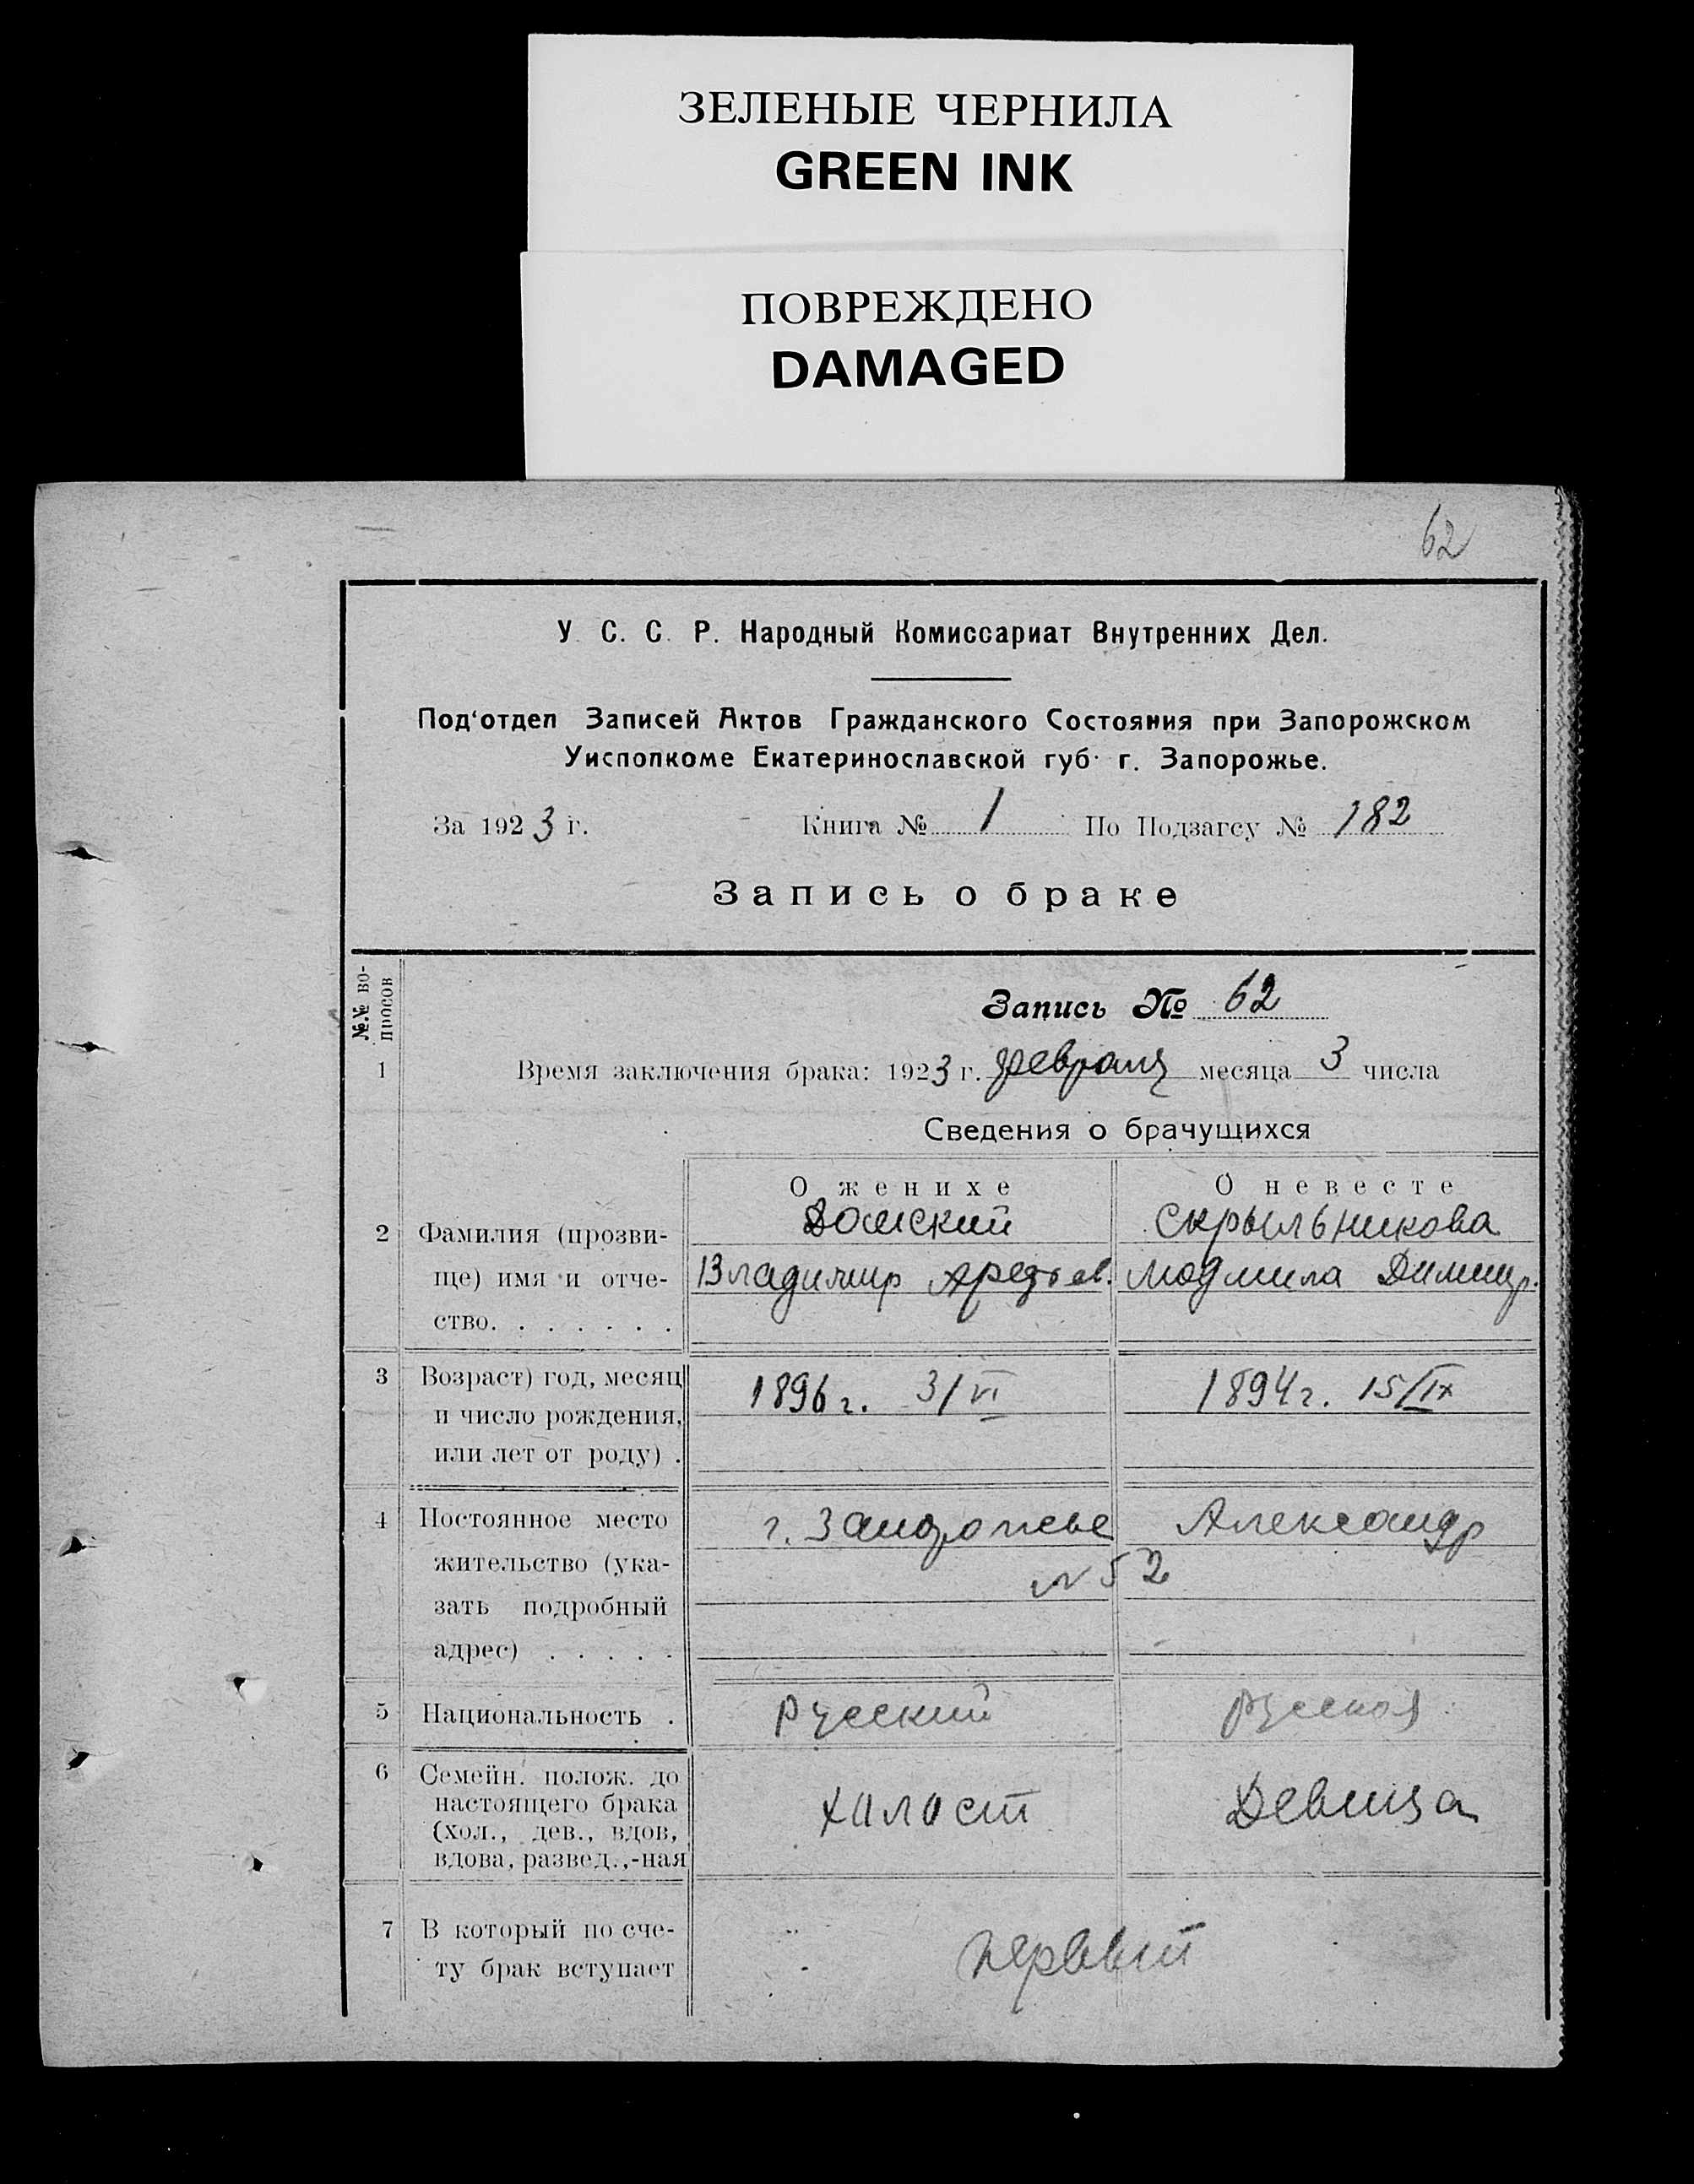 ЗЕЛЕНЫЕ ЧЕРНИЛА
GREEN INK
ПОВРЕЖДЕНО
DAMAGED
62
У. С. С. Р. Народный Комиссариат Внутренних Дел.
Под'отдел Записей Актов Гражданского Состояния при Запорожском
Уисполкоме Екатеринославской губ. г. Запорожье.
За 1923 г. Книга № 1 По Подзагсу № 182
Запись о браке
№.№ во-
просов
Запись № 62
1 Время заключения брака: 1923 г. февраля месяца 3 числа
Сведения о брачущихся
О женихе О невесте
Домский Скрыльникова
2 Фамилия (прозви-
ще) имя и отче- Владимир Людмила Димитр.
ство. . . . . . .
3 Возраст) год, месяц 1896 г. 3/VI 1894 г. 15/IX
и число рождения,
или лет от роду) .
4 Постоянное место г. Запорожье Александр
жительство (ука- № 52
зать подробный
адрес) . . . . .
5 Национальность . русский русская
6 Семейн. полож. до
настоящего брака холост Девица
(хол., дев., вдов,
вдова, развед.,-ная
7 В который по сче- первый
ту брак вступает